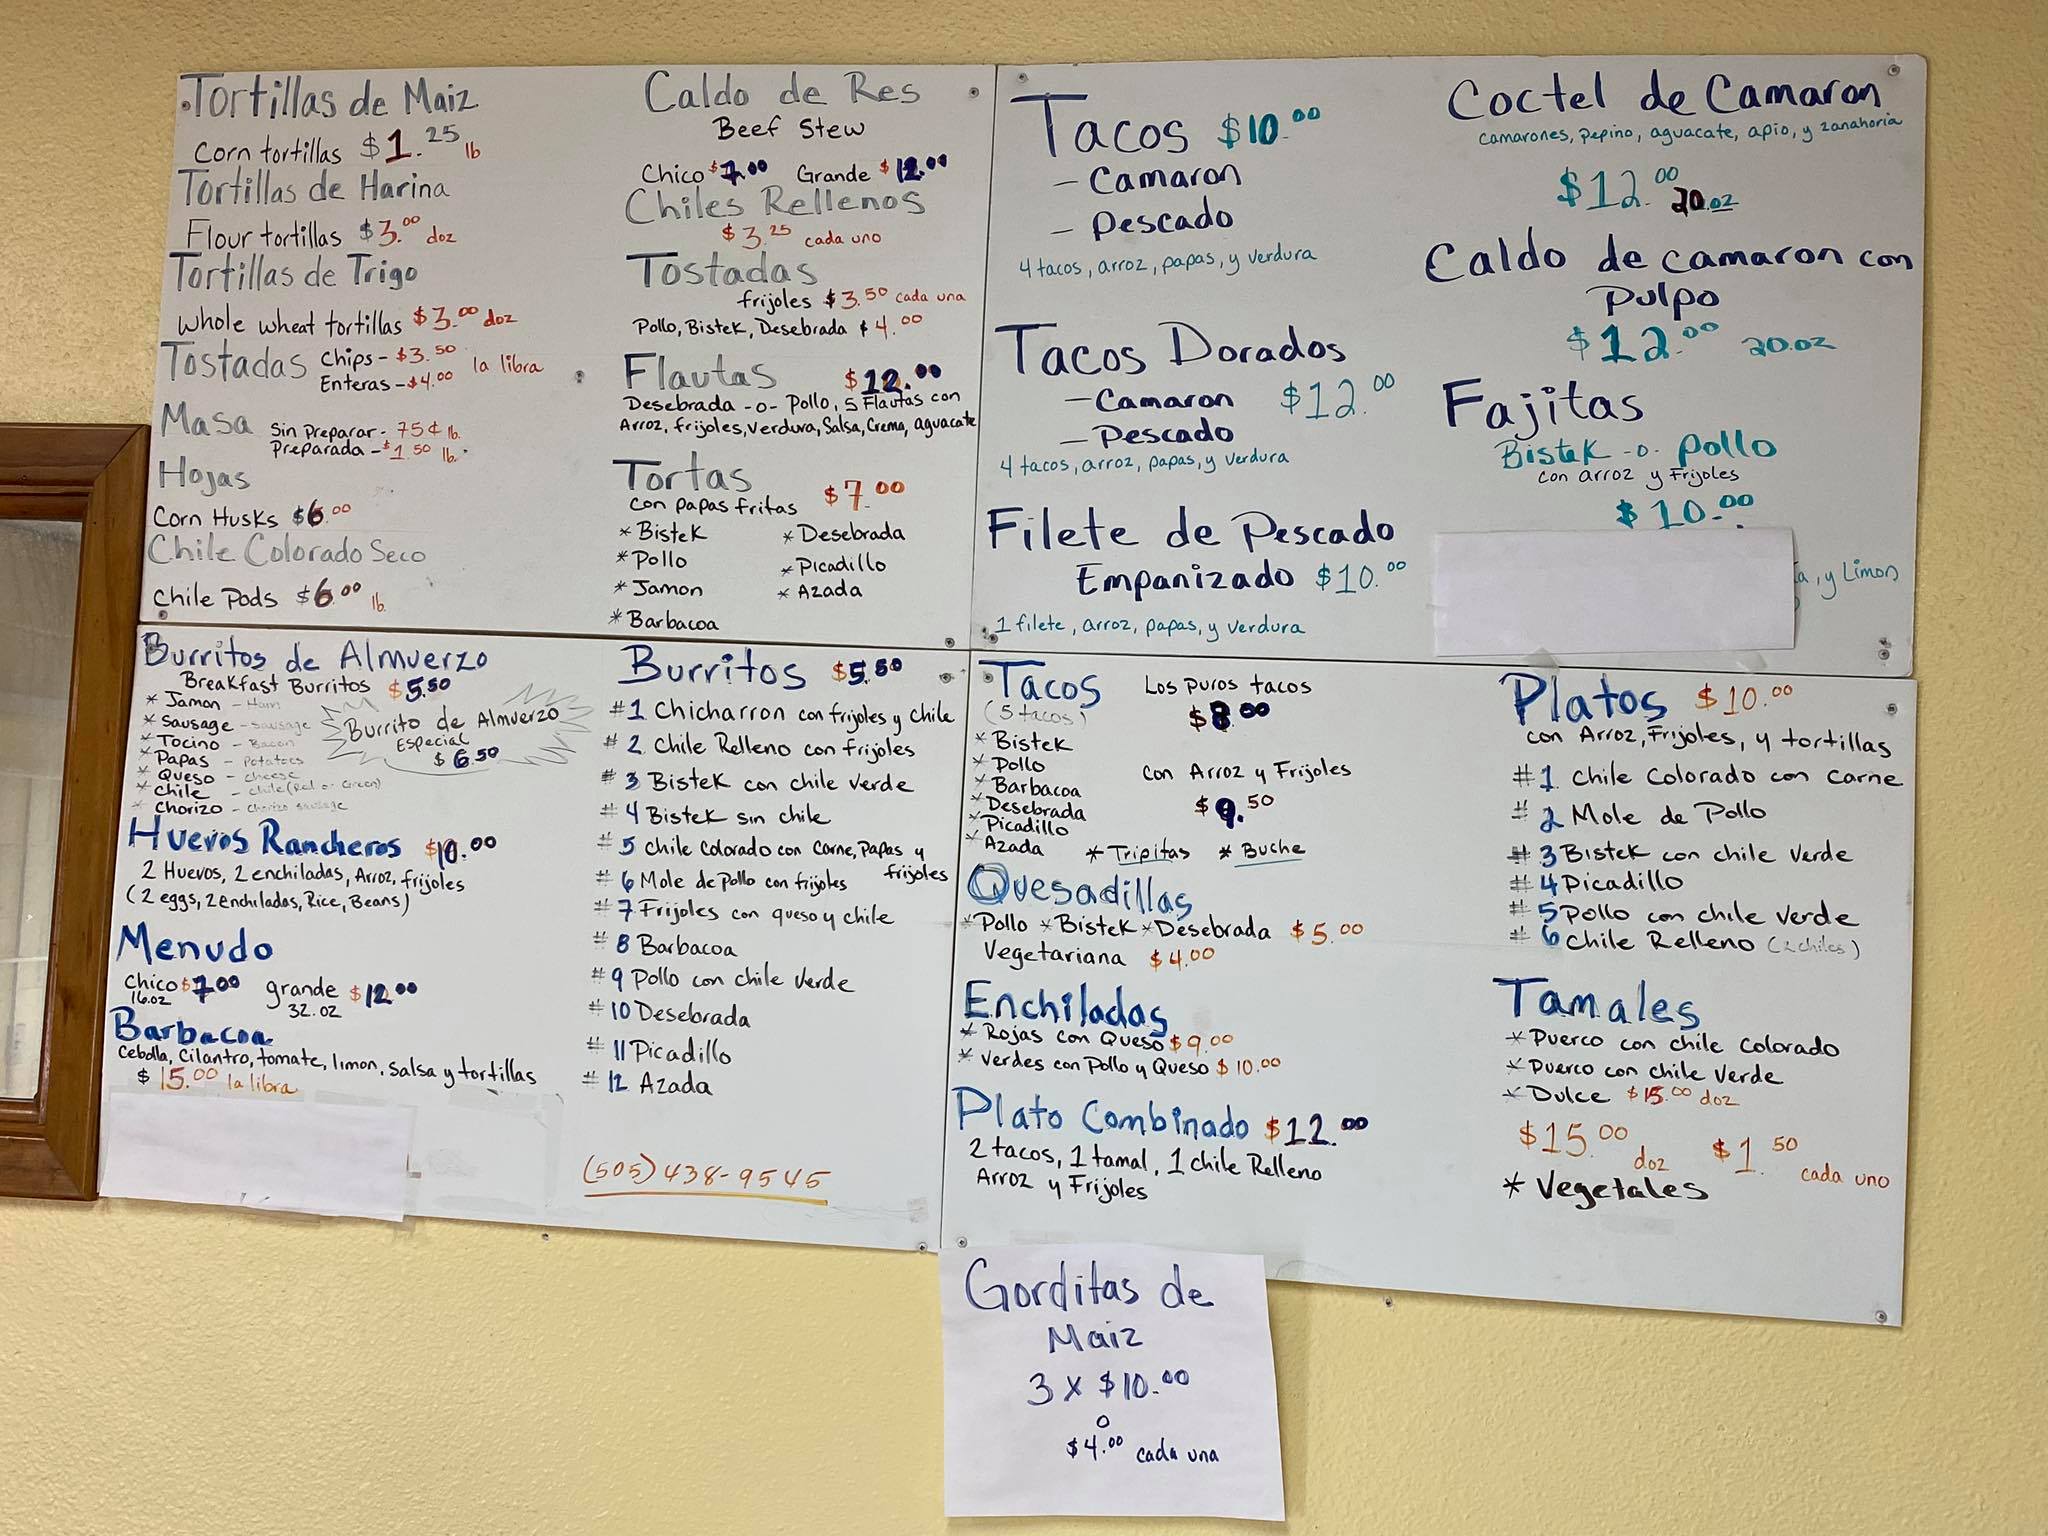 Tortillas de Maiz
Corn tortillas $1.25 lb
Tortillas de Harina
Flour tortillas $3.00 doz
Tortillas de Trigo
Whole wheat tortillas $3.00 doz
Tostadas Chips - $3.50 la libra
Enteras - $4.00
Masa Sin Preparar - 75¢ lb.
Preparada - $1.50 lb.
Hojas
Corn Husks $6.00
Chile Colorado Seco
Chile Pods $6.00 lb
Caldo de Res
Beef Stew
Chico $7.00 Grande $12.00
Chiles Rellenos
$3.25 cada uno
Tostadas
frijoles $3.50 cada una
Pollo, Bistek, Desebrada $4.00
Flautas $12.00
Desebrada -o- Pollo, 5 Flautas con
Arroz, frijoles, verdura, Salsa, Crema, aguacate
Tortas $7.00
con papas fritas
* Bistek * Desebrada
* Pollo * Picadillo
* Jamon * Azada
* Barbacoa
Tacos $10.00
- Camaron
- Pescado
4 tacos, arroz, papas, y verdura
Tacos Dorados
- Camaron $12.00
- Pescado
4 tacos, arroz, papas, y verdura
Filete de Pescado
Empanizado $10.00
1 filete, arroz, papas, y verdura
Coctel de Camaron
camarones, pepino, aguacate, apio, y zanahoria
$12.00 20.oz
Caldo de camaron con
Pulpo
$12.00 20.oz
Fajitas
Bistek -o- Pollo
con arroz y Frijoles
$10.00
, y Limon
Burritos de Almuerzo
Breakfast Burritos $5.50
* Jamon - Ham
* Sausage - Sausage
* Tocino - Bacon
* Papas - Potatoes
* Queso - cheese
* Chile - Chile (Red or Green)
* Chorizo - Chorizo sausage
Burrito de Almuerzo
Especial
$6.50
Huevos Rancheros $10.00
2 Huevos, 2 enchiladas, Arroz, frijoles
(2 eggs, 2 enchiladas, Rice, Beans)
Menudo
Chico $7.00 grande $12.00
16.oz 32.oz
Barbacoa
Cebolla, Cilantro, tomate, limon, salsa y tortillas
$15.00 la libra
Burritos $5.50
#1 Chicharron con frijoles y chile
#2 Chile Relleno con frijoles
#3 Bistek con chile verde
#4 Bistek sin chile
#5 Chile Colorado con Carne, Papas y
frijoles
#6 Mole de Pollo con frijoles
#7 Frijoles con queso y chile
#8 Barbacoa
#9 Pollo con chile verde
#10 Desebrada
#11 Picadillo
#12 Azada
(505) 438-9545
Tacos Los puros tacos
(5 tacos) $8.00
* Bistek
* Pollo
* Barbacoa con Arroz y Frijoles
* Desebrada $9.50
* Picadillo
* Azada * Tripitas * Buche
Quesadillas
* Pollo * Bistek * Desebrada $5.00
Vegetariana $4.00
Enchiladas
* Rojas con Queso $9.00
* Verdes con Pollo y Queso $10.00
Plato Combinado $12.00
2 tacos, 1 tamal, 1 chile Relleno
Arroz y Frijoles
Platos $10.00
con Arroz, Frijoles, y tortillas
#1 Chile Colorado con Carne
#2 Mole de Pollo
#3 Bistek con chile verde
#4 Picadillo
#5 Pollo con chile verde
#6 Chile Relleno (2 chiles)
Tamales
* Puerco con chile Colorado
* Puerco con chile verde
* Dulce $15.00 doz
$15.00 doz $1.50 cada uno
* Vegetales
Gorditas de
Maiz
3 x $10.00
o
$4.00 cada una